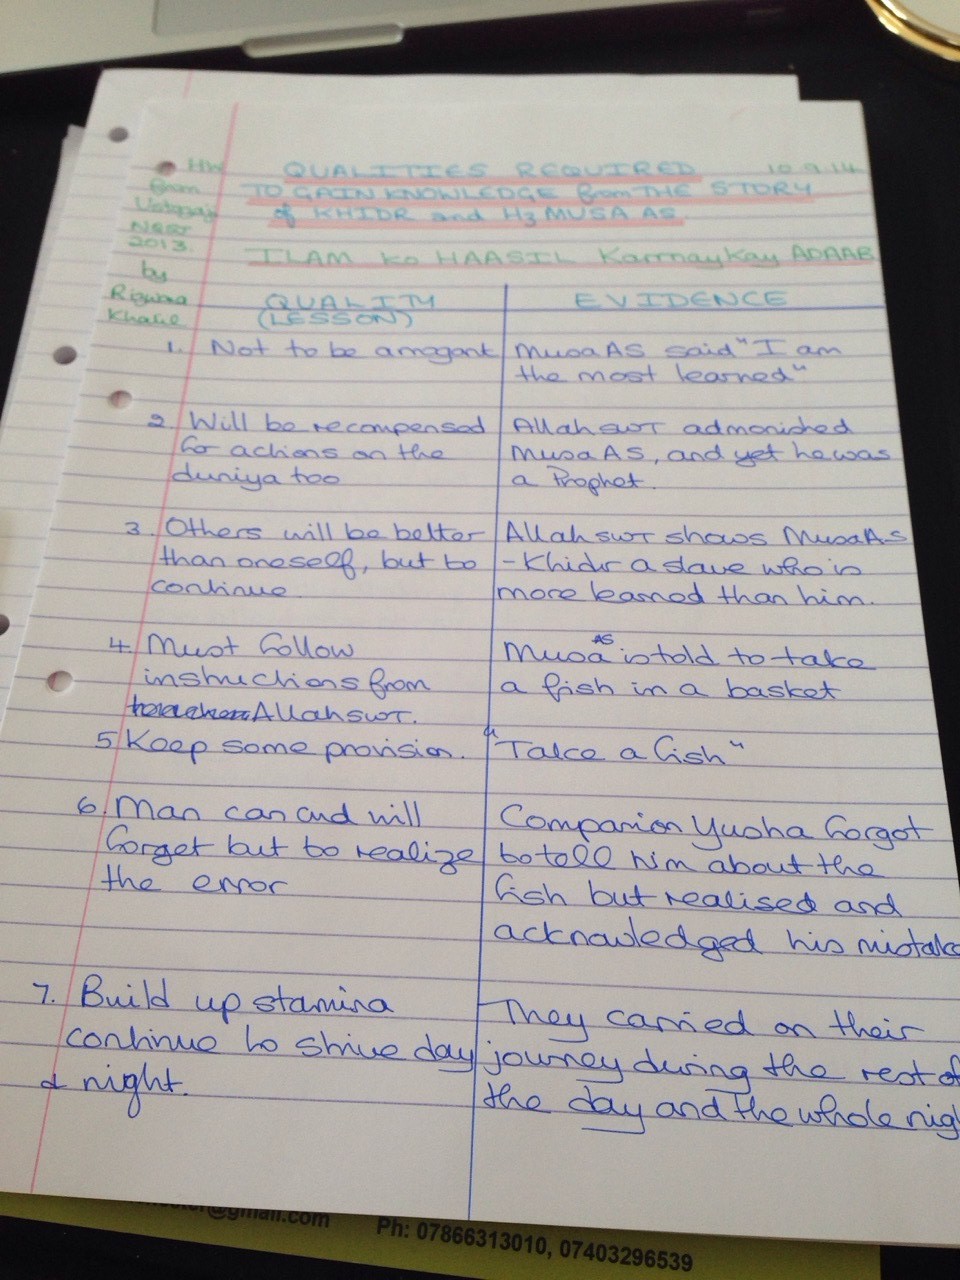 HW
from
Ustazaji
NSST
2013.
by
Rizwana
Khalil
QUALITIES REQUIRED 10.9.14
TO GAIN KNOWLEDGE from THE STORY
of KHIDR and Hz MUSA AS.
ILAM ko HAASIL Karrnay Kay ADAAB
QUALITY
(LESSON)
EVIDENCE
1. Not to be arragant
Musa AS said "I am
the most learned"
2 Will be recompensed
for actions on the
duniya too
Allah swt admonished
Musa AS, and yet he was
a Prophet.
3. Others will be better
than oneself, but to
continue.
Allah swt shows Musa A.S
- Khidr a slave who is
more learned than him.
4. Must follow
instructions from
Allah swt.
Musa AS is told to take
a fish in a basket
5 Keep some provision.
"Take a fish"
6. Man can and will
forget but to realize
the error
Companion Yusha forgot
to tell him about the
fish but realised and
acknowledged his mistake
7. Build up stamina
continue to strive day
& night.
They carried on their
journey during the rest of
the day and the whole nig
@gmail.com Ph: 07866313010, 07403296539